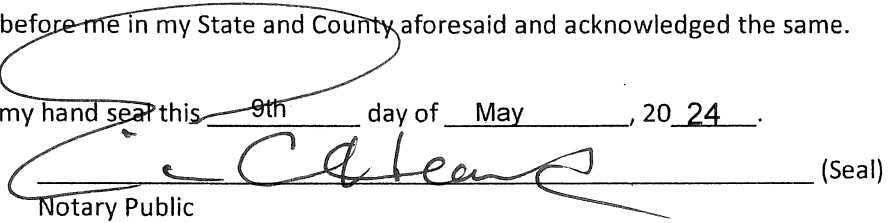 before me in my State and County aforesaid and acknowledged the same.
my hand seal this 9th day of May, 20 24.
(Seal)
Notary Public